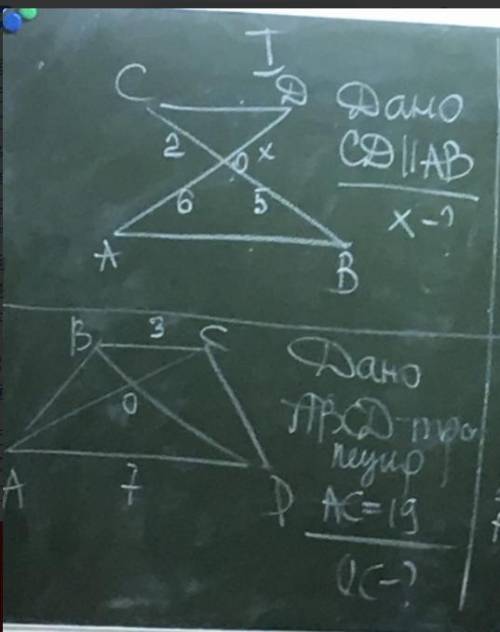 I
C D
2 O x
6 5
A B
Дано
CD||AB
x-?
3
B C
O
A 7 D
Дано
ABCD-тра
пеция
AC=19
OC-?